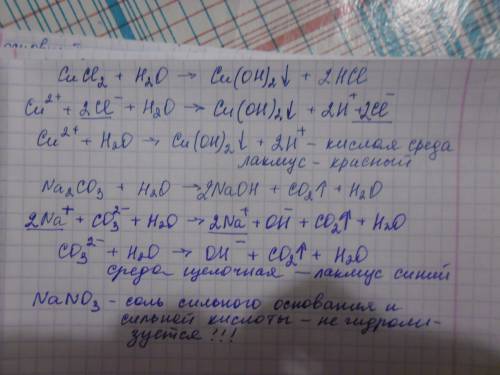 CuCl₂ + H₂O → Cu(OH)₂↓ + 2HCl
Cu²⁺ + 2Cl⁻ + H₂O → Cu(OH)₂↓ + 2H⁺ + 2Cl⁻
Cu²⁺ + H₂O → Cu(OH)₂↓ + 2H⁺ - кислая среда
лакмус - красный
Na₂CO₃ + H₂O → 2NaOH + CO₂↑ + H₂O
2Na⁺ + CO₃²⁻ + H₂O → 2Na⁺ + OH⁻ + CO₂↑ + H₂O
CO₃²⁻ + H₂O → OH⁻ + CO₂↑ + H₂O
среда щелочная - лакмус синий
NaNO₃ - соль сильного основания и
сильной кислоты - не гидроли-
зуется!!!